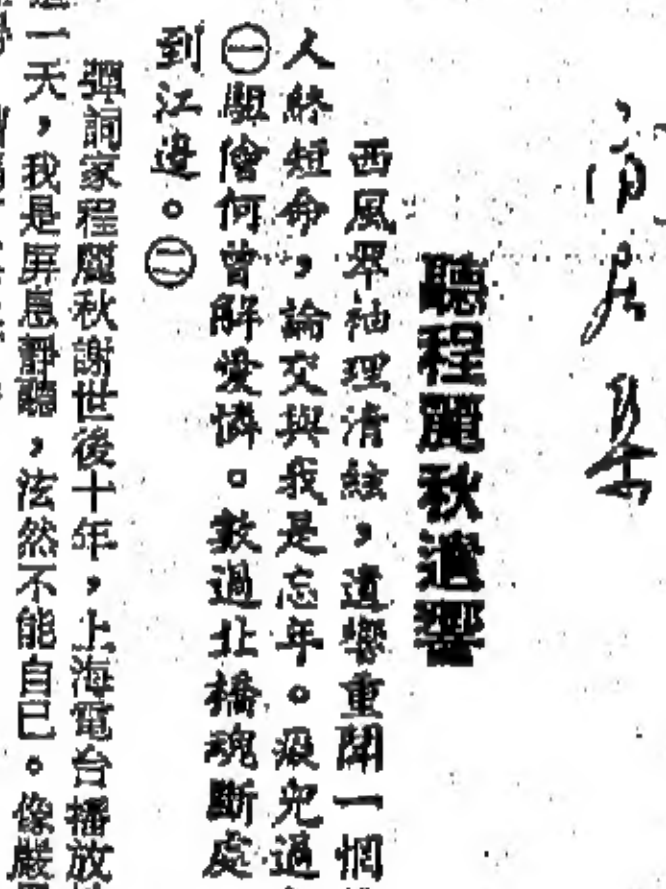 居集
聽程麗秋遺響
西風翠袖理清絃,遺響重聞一惘
人終短命,論交與我是忘年。過
㊀駔儈何曾解愛憐。數過北橋魂斷處
到江邊。㊁
彈詞家程麗秋謝世後十年,上海電台播放
一天,我是屏息靜聽,泫然不能自已。像嚴